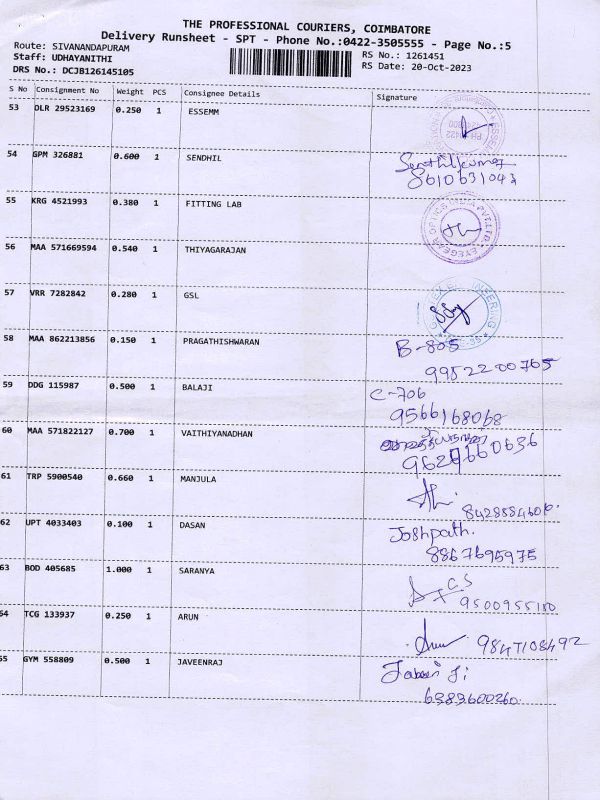 THE PROFESSIONAL COURIERS, COIMBATORE
Delivery Runsheet - SPT - Phone No.:0422-3505555 - Page No.:5
Route: SIVANANDAPURAM RS No.: 1261451
Staff: UDHAYANITHI RS Date: 20-Oct-2023
DRS No.: DCJB126145105
S No Consignment No Weight PCS Consignee Details Signature
53 DLR 29523169 0.250 1 ESSEMM
54 GPM 326881 0.600 1 SENDHIL Senthilkumar
8610631043
55 KRG 4521993 0.380 1 FITTING LAB
56 MAA 571669594 0.540 1 THIYAGARAJAN
57 VRR 7282842 0.280 1 GSL
58 MAA 862213856 0.150 1 PRAGATHISHWARAN B-805
9952200765
59 DDG 115987 0.500 1 BALAJI C-706
9566168068
60 MAA 571822127 0.700 1 VAITHIYANADHAN
61 TRP 5900540 0.660 1 MANJULA
62 UPT 4033403 0.100 1 DASAN Joshpath.
8867695975
63 BOD 405685 1.000 1 SARANYA
9500955180
64 TCG 133937 0.250 1 ARUN Arun 9847108492
65 GYM 558809 0.500 1 JAVEENRAJ
6383600260